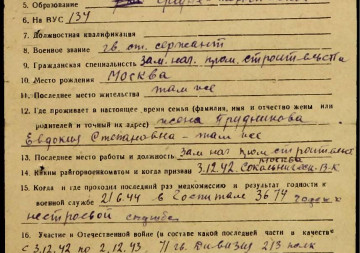 5. Образование
6. На ВУС 134
7. Должностная квалификация
8. Военное звание гв. ст. сержант
9. Гражданская специальность зам. нач. пром. строительства
10. Место рождения Москва
11. Последнее место жительства там же
12. Где проживает в настоящее время семья (фамилия, имя и отчество жены или
родителей и точный на адрес) жена Прудникова
Евдокия Степановна - там же
13. Последнее место работы и должность зам нач пром строительства
14. Каким райгорвоенкоматом и когда призван 3.12.42 Москва Сокольнич. В.К.
15. Когда и где проходил последний раз медкомиссию и результат годности к
военной службе 21.6.44 в Госпитале 3674 годен к
нестроевой службе
16. Участие в Отечественной войне (в составе какой последней части и в качестве
с 3.12.42 по 2.12.43 71 гв. Дивизия 213 полк